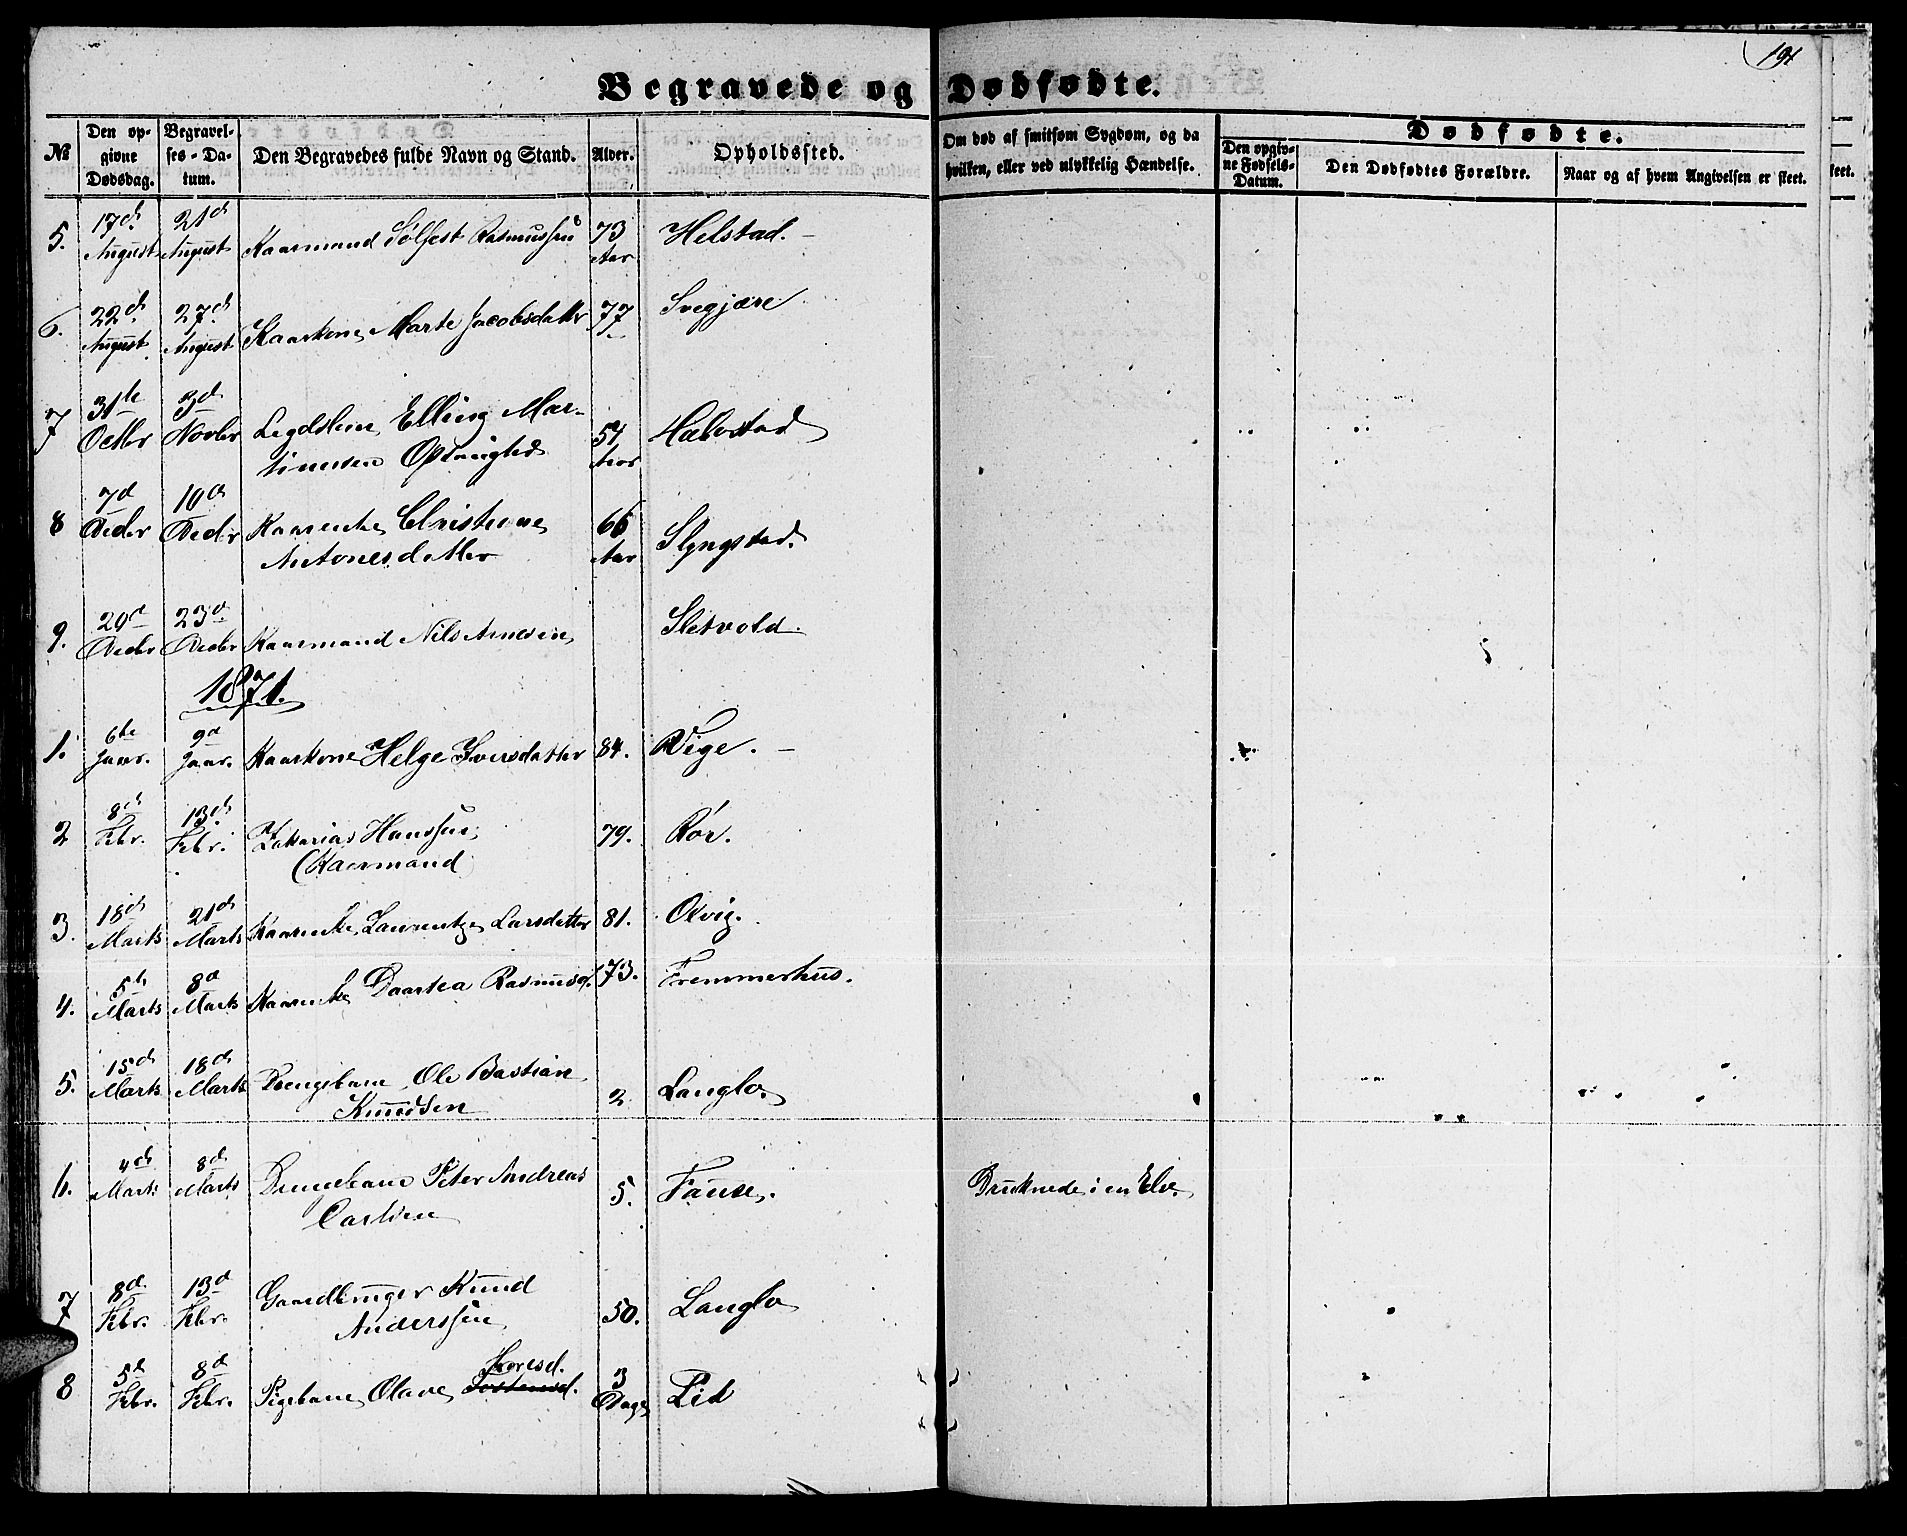 191
Begravede og Dødfødte.
№
Den opgivne Dødsdag.
Begravelses-Datum.
Den Begravedes fulde Navn og Stand.
Alder.
Opholdssted.
Om død af smitsom Sygdom, og da hvilken, eller ved ulykkelig Hændelse.
Dødfødte.
Den opgivne Fødsels-Datum.
Den Dødfødtes Forældre.
Naar og af hvem Angivelsen er skeet.
5. 17de August 21de August Kaarmand Sølfest Rasmussen 73 Aar Helstad. –
6. 22de August 27de August Kaarkone Marte Jacobsdatter 77 Svegjære
7 31te Octbr 3d Novbr Legdslem Elling Mar-
tinussen 54 Aar Hal
8 7d Decbr 10d Decbr Kaarenke Christiane
Antonesdatter 66 Aar Slyngstad.
9. 20d Decbr 23d Decbr Kaarmand Nils Arnesen Sletvold.
1871.
1. 6te Jaar. 9d Jaar. Kaarkone Helge Iversdatter 84. Vige. –
2 8de Febr. 13de Febr. Zakarias Hanssen
Kaarmand 79. Rör.
3. 18de Marts 21de Marts Kaarenke Laurentze Larsdatter 81. Oxvig.
4. 5te Marts 8d Marts Kaarenke Daartea Rasmusd. 73. Fremmerhus.
5. 15de Marts 18de Marts Drengebarn Ole Bastian
Knudsen 2 Langlo.
6. 4de Marts 8de Marts Drengebarn Peter Andreas
Carlsen 5. Fause. Druknede i en Elv.
7 8d. Febr. 13d Febr. Gaardbruger Knud
Anderssen 50. Langlo
8 5d Febr. 8d Febr. Pigebarn Olave Tostensd. Toresd. 3 Dage Lid